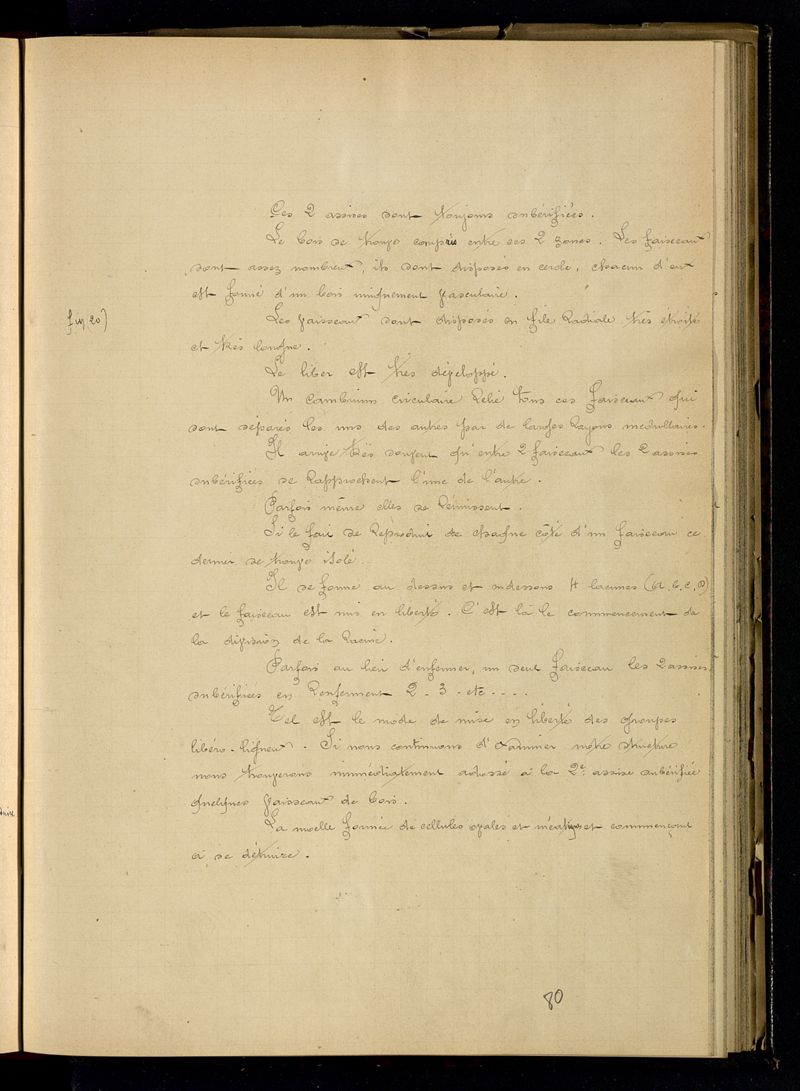 Ces 2 assises sont toujours subérifiées.
Le bois se trouve compris entre ces 2 zones. Les faisceaux
sont assez nombreux, ils sont disposés en cercle, chacun d'eux
est formé d'un bois uniquement vasculaire.
fig 20)
Les vaisseaux sont disposés en file radiale très étroite
et très longue.
Le liber est très développé.
Un cambium circulaire relie tous ces faisceaux qui
sont séparés les uns des autres par de larges rayons medullaires.
Il arrive très souvent qu'entre 2 faisceaux les 2 assises
subérifiées se rapprochent l'une de l'autre.
Parfois même elles se réunissent.
Si le fait se réproduit de chaque côté d'un faisceau ce
dernier se trouve isolé.
Il se forme au dessus et au dessous 4 lacunes (a, b, c, d)
et le faisceau est mis en liberté. C'est là le commencement de
la division de la Racine.
Parfois au lieu d'enfermer, un seul faisceau les 2 assises
subérifiées en renferment 2 - 3 - etc - . . .
Tel est le mode de mise en liberté des groupes
libéro-ligneux. Si nous continuons d'examiner notre structure
nous trouverons immédiatement adossé à la 2e assise subérifiée
quelques vaisseaux de bois.
La moelle formée de cellules ovales et méatiques et commençant
à se détruire.
80